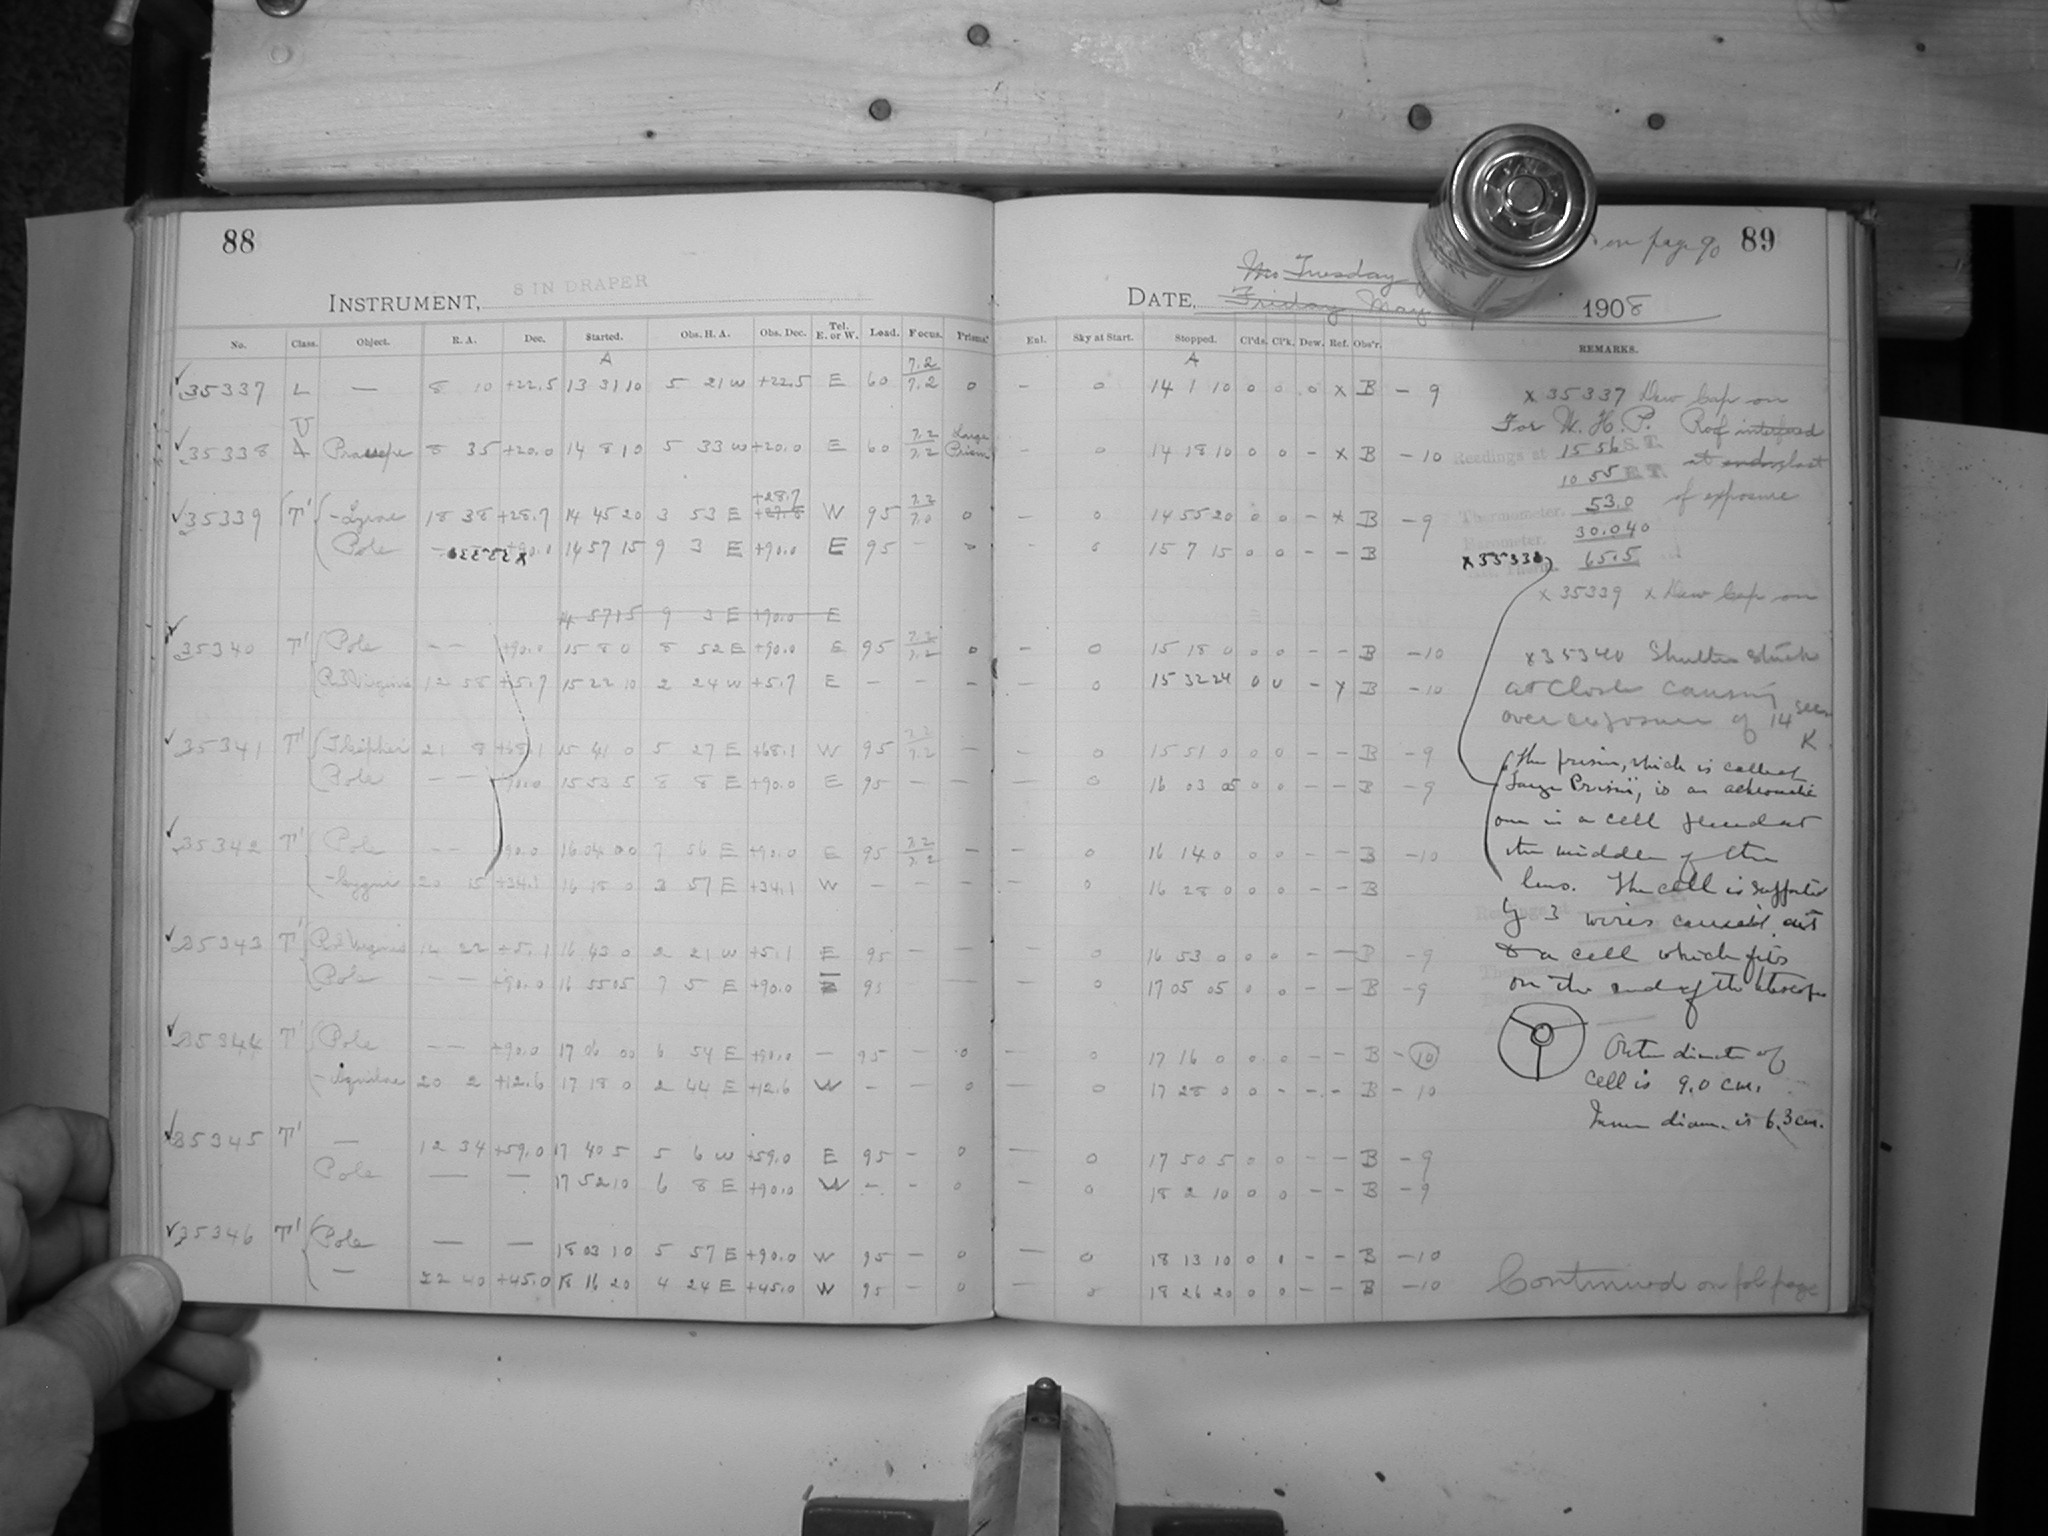 88
8 IN DRAPER
INSTRUMENT,
No. Class. Object. R. A. Dec. Started. Obs. H. A. Obs. Dec. Tel. E. or W. Load. Focus. Prisms.
A
35337 L — 8 10 +22.5 13 31 10 5 21 W +22.5 E 60 7.2 7.2 0
U
35338 A Praesepe 8 35 +20.0 14 8 10 5 33 W +20.0 E 60 7.2 7.2 Large Prism
+28.7
35339 T' -Lyrae 18 38 +28.7 14 45 20 3 53 E W 95 0
Pole +90.0 14 57 15 9 3 E +90.0 E 95 - 0
14 57 15 9 3 E +90.0 E
35340 T' Pole — — +90.0 15 8 0 8 52 E +90.0 E 95 7.2 7.2 0
Virginis 12 58 +5.7 15 22 10 2 24 W +5.7 E — — —
35341 T' Cephei 21 8 +68.1 15 41 0 5 27 E +68.1 W 95 7.2 7.2 —
Pole — — +90.0 15 53 5 8 8 E +90.0 E 95 — —
35342 T' Pole — — +90.0 16 04 00 7 56 E +90.0 E 95 7.2 7.2 —
-Cygni 20 15 +34.1 16 18 0 3 57 E +34.1 W — — —
35343 T' Virginis 14 22 +5.1 16 43 0 2 21 W +5.1 E 95 — —
Pole — — +90.0 16 55 05 7 5 E +90.0 95 — —
35344 T' Pole — — +90.0 17 06 00 6 54 E +90.0 — 95 — 0
-Aquilae 20 2 +12.6 17 18 0 2 44 E +12.6 W — — 0
35345 T' — 12 34 +59.0 17 40 5 5 6 W +59.0 E 95 — 0
Pole — — 17 52 10 6 8 E +90.0 W — - 0
35346 T' Pole — — 18 03 10 5 57 E +90.0 W 95 — 0
— 22 40 +45.0 18 16 20 4 24 E +45.0 W 95 — 0
on page 90 89
Tuesday
DATE, Friday May 1908
Enl. Sky at Start. Stopped. Cl'ds. Cl'k. Dew. Ref. Obs'r. REMARKS.
A
— 0 14 1 10 0 0 0 x B - 9
- 0 14 18 10 0 0 - x B - 10
— 0 14 55 20 0 0 - x B - 9
0 15 7 15 0 0 - - B
— 0 15 18 0 0 0 - - B - 10
0 15 32 24 0 0 - B - 10
— 0 15 51 0 0 0 - - B - 9
— 0 16 03 05 0 0 - - B - 9
— 0 16 14 0 0 0 - - B - 10
— 0 16 28 0 0 0 - - B
— 0 16 53 0 0 0 - - B - 9
— 0 17 05 05 0 0 - - B - 9
— 0 17 16 0 0 0 - - B - 10
— 0 17 28 0 0 - - - B - 10
— 0 17 50 5 0 0 - - B - 9
— 0 18 2 10 0 0 - - B - 9
— 0 18 13 10 0 0 - - B - 10
— 0 18 26 20 0 0 - - B - 10
x 35337 Dew Cap on
For W. H. P. Roof interfered
Readings at 15 56 S. T. at last
10 55 E. T.
Thermometer. 53.0 of exposure
Barometer. 30.040
x35338 Therm. 65.5
x 35339 x Dew Cap on
x35340 Shutter stuck
at close causing
over exposure of 14 sec
K
The prism, which is called
"Large Prism", is an achromatic
one in a cell placed at
the middle of the
lens. The cell is supported
by 3 wires
a cell which fits
on the end of the telescope
Outer diameter of
cell is 9.0 cm.
Inner diam. is 6.3 cm.
Continued on fol page